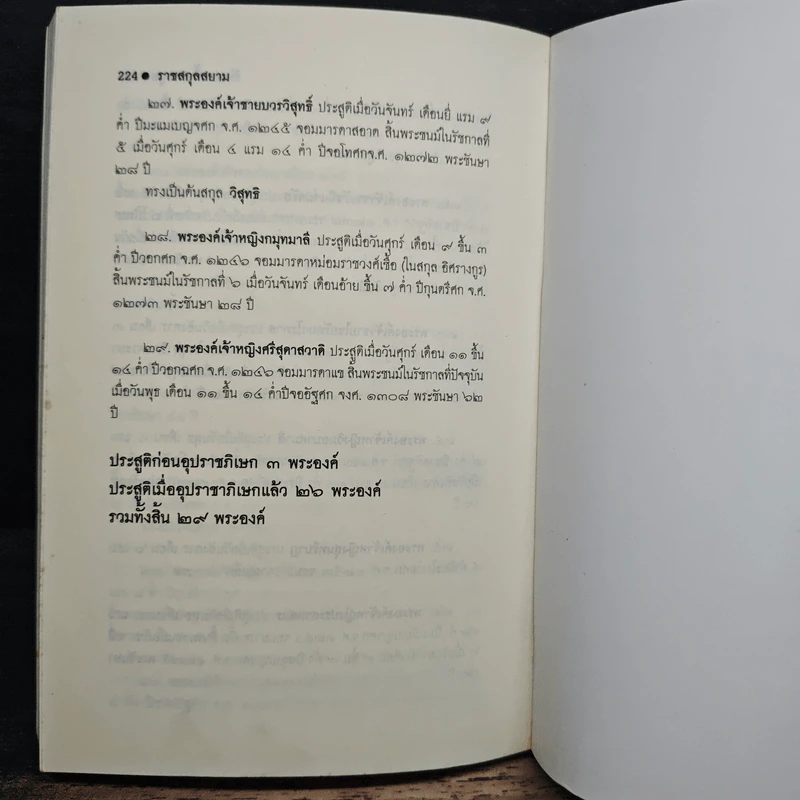 224 ● ราชสกุลสยาม
๒๗. พระองค์เจ้าชายบวรวิสุทธิ์ ประสูติเมื่อวันจันทร์ เดือนยี่ แรม ๙
ค่ำ ปีมะแมเบญจศก จ.ศ. ๑๒๔๕ จอมมารดาสอาด สิ้นพระชนม์ในรัชกาลที่
๕ เมื่อวันศุกร์ เดือน ๔ แรม ๑๔ ค่ำ ปีจอโทศกจ.ศ. ๑๒๗๒ พระชันษา
๒๘ ปี
ทรงเป็นต้นสกุล วิสุทธิ
๒๘. พระองค์เจ้าหญิงกมุทมาลี ประสูติเมื่อวันศุกร์ เดือน ๙ ขึ้น ๓
ค่ำ ปีวอกศก จ.ศ. ๑๒๔๖ จอมมารดาหม่อมราชวงศ์เชื้อ (ในสกุล อิศรางกูร)
สิ้นพระชนม์ในรัชกาลที่ ๖ เมื่อวันจันทร์ เดือนอ้าย ขึ้น ๗ ค่ำ ปีกุนตรีศก จ.ศ.
๑๒๗๓ พระชันษา ๒๘ ปี
๒๙. พระองค์เจ้าหญิงศรีสุดาสวาดิ ประสูติเมื่อวันศุกร์ เดือน ๑๑ ขึ้น
๑๔ ค่ำ ปีวอกฉศก จ.ศ. ๑๒๔๖ จอมมารดาแช สิ้นพระชนม์ในรัชกาลที่ปัจจุบัน
เมื่อวันพุธ เดือน ๑๑ ขึ้น ๑๔ ค่ำปีจออัฐศก จงศ. ๑๓๐๘ พระชันษา ๖๒
ปี
ประสูติก่อนอุปราชภิเษก ๓ พระองค์
ประสูติเมื่ออุปราชาภิเษกแล้ว ๒๖ พระองค์
รวมทั้งสิ้น ๒๙ พระองค์